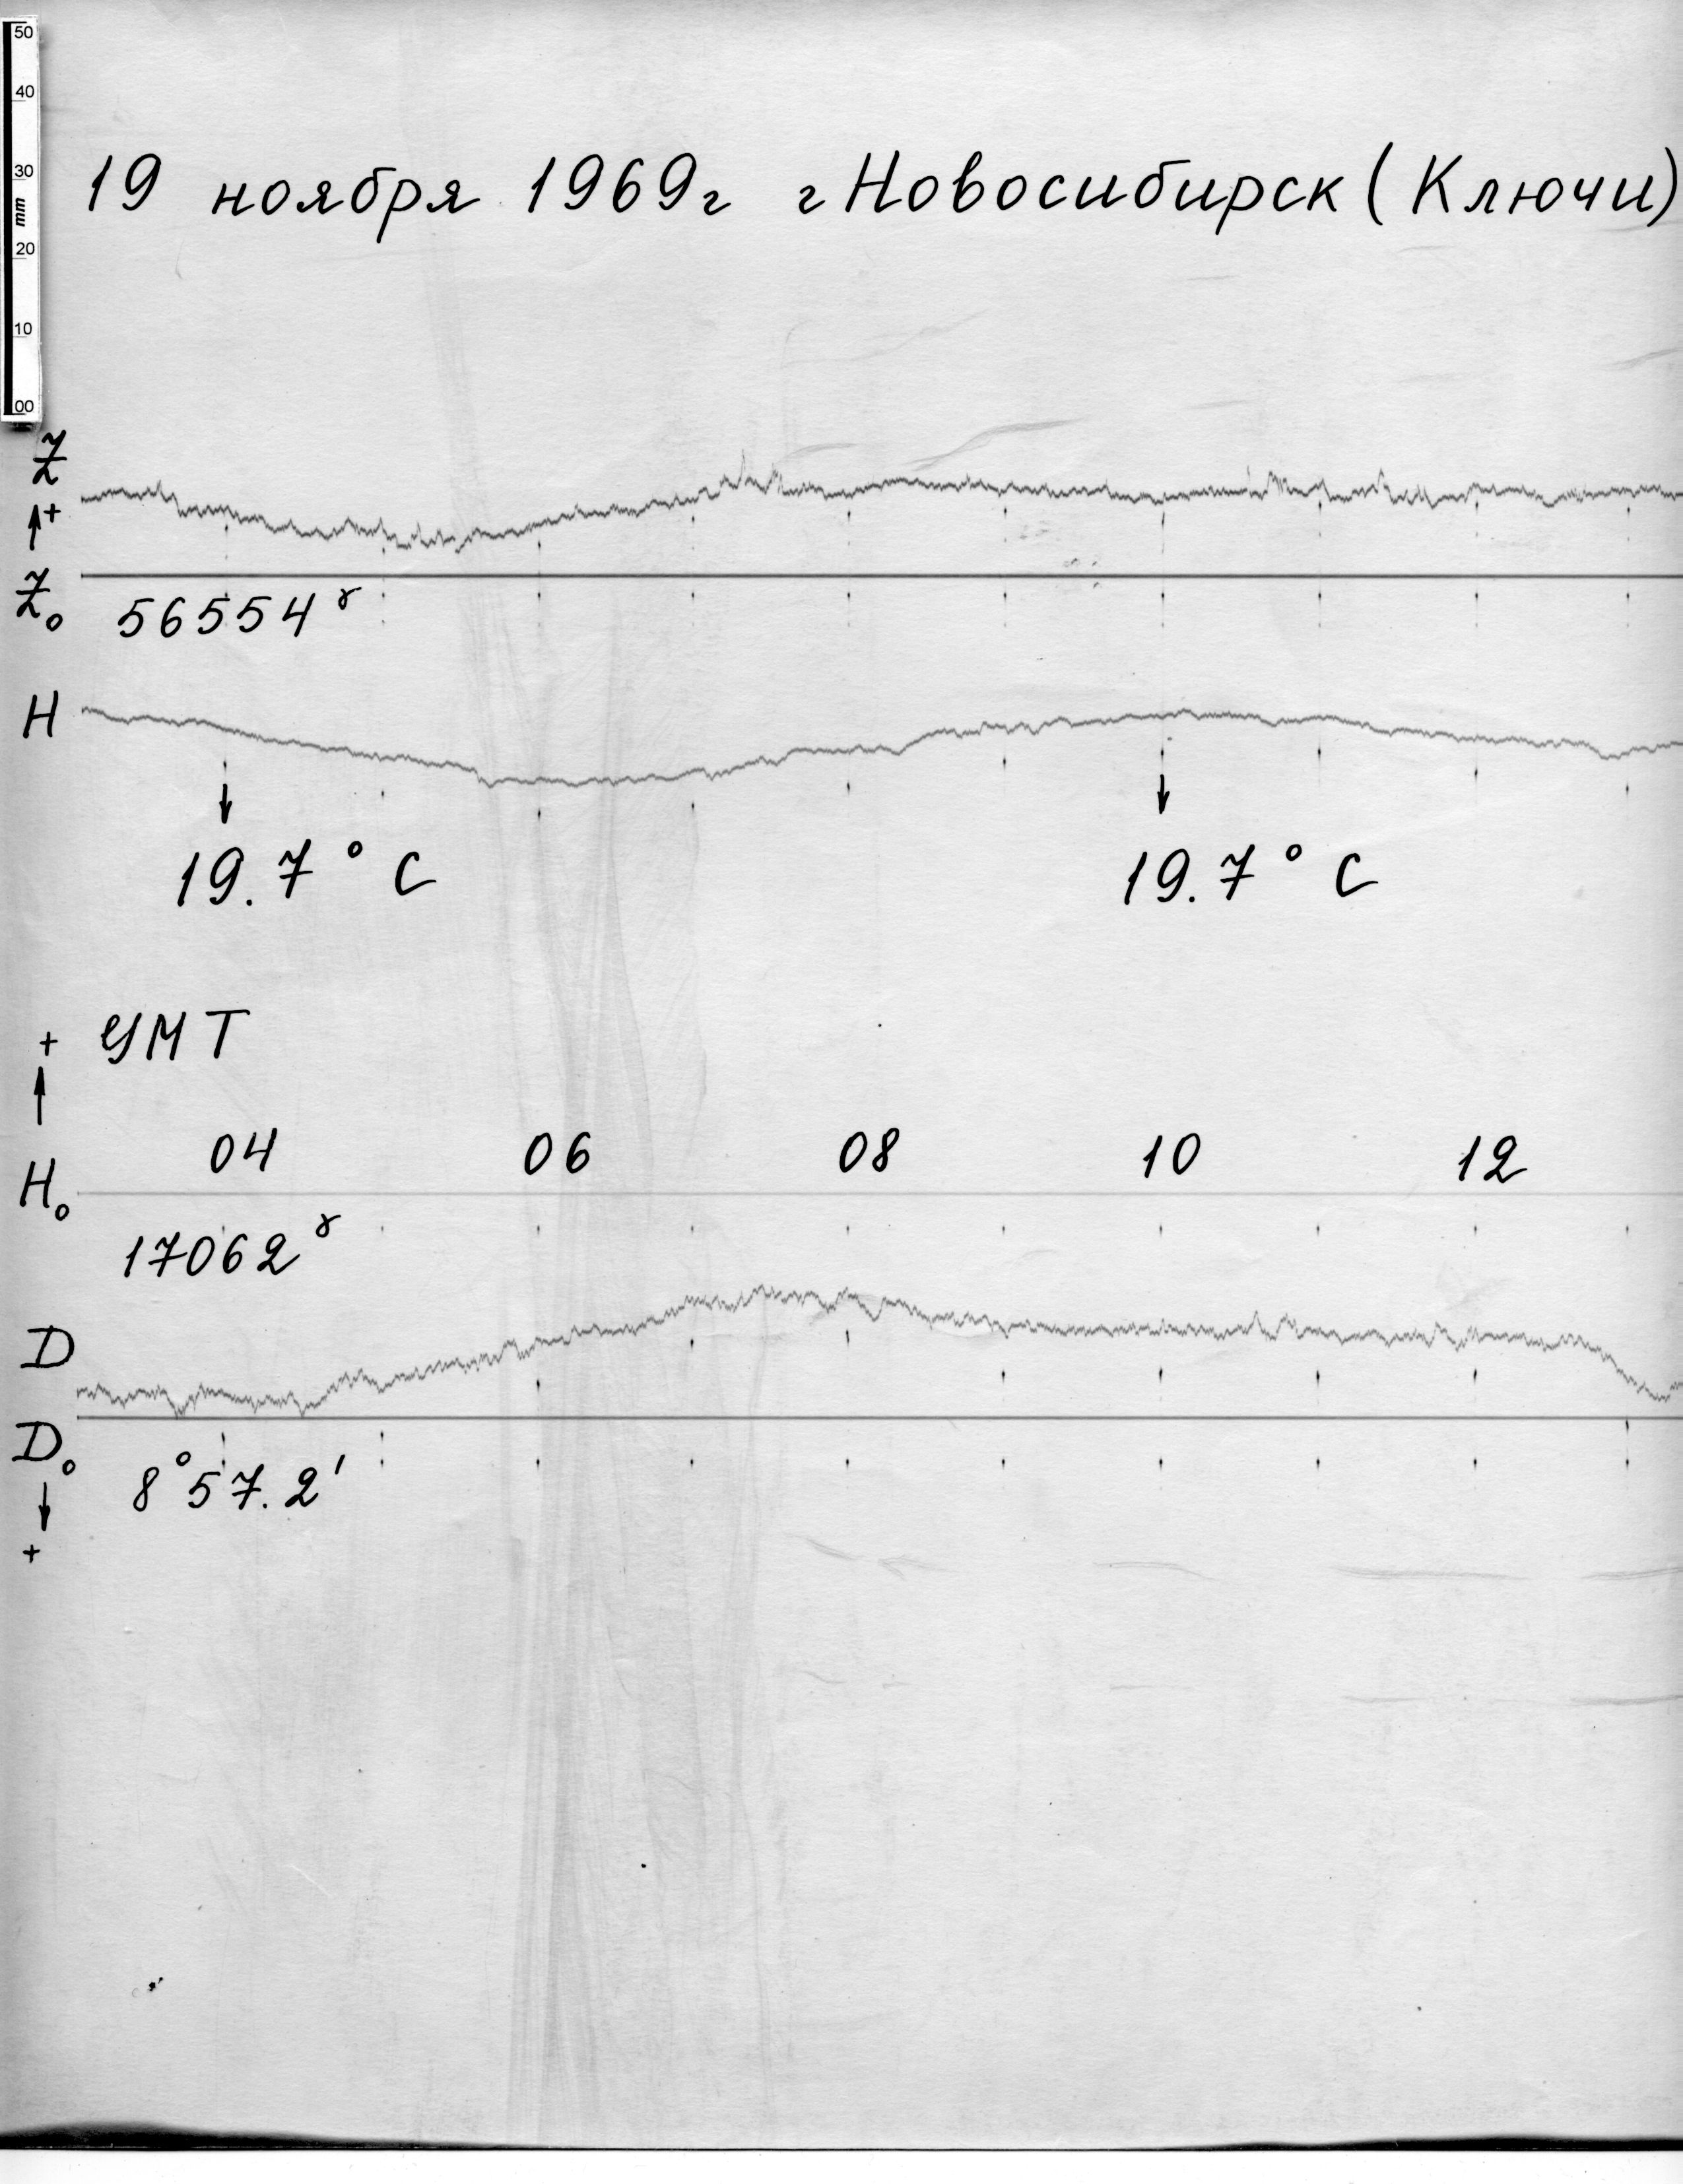 50
40
30
mm
20
10
00
19 ноября 1969г г Новосибирск (Ключи)
Z
+
Z₀ 56554 γ
H
19.7° C 19.7° C
+ УМТ
04 06 08 10 12
H₀
17062 γ
D
D₀
8°57.2'
+